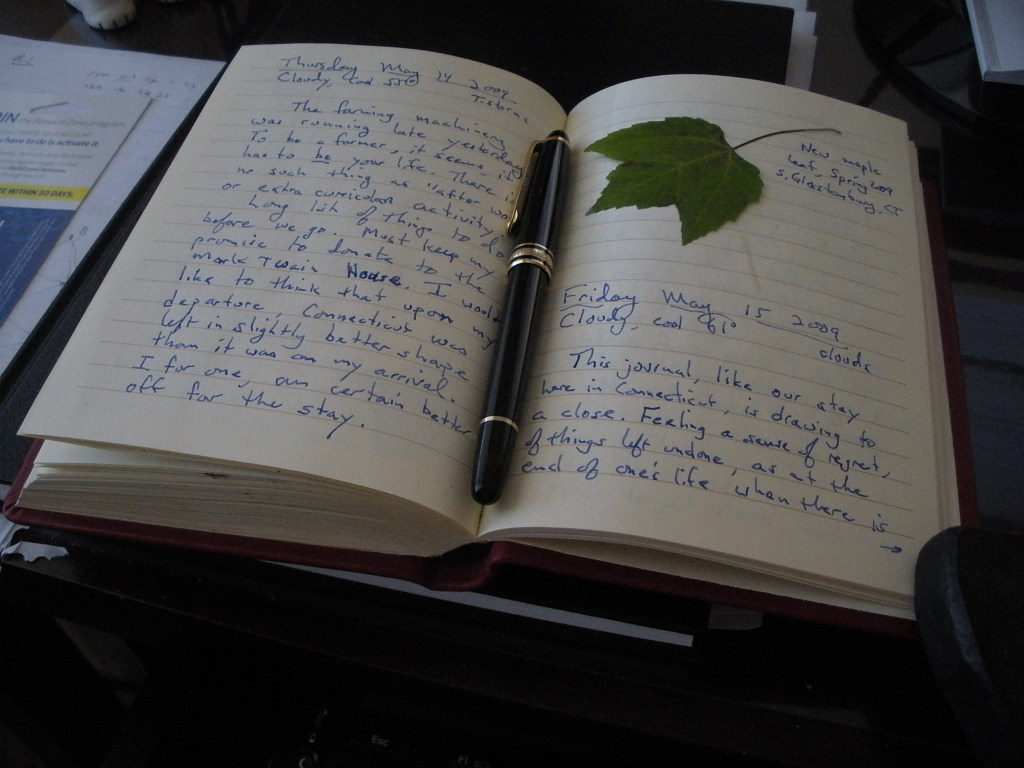 Thursday May 14 2009
Cloudy, cool 55°
T-storms
The farming machinery
was running late yesterday.
To be a farmer, it seems it
has to be your life. There is
no such thing as "after wo
or extra curricular activity.
Long list of things to do
before we go. Must keep my
promise to donate to the
Mark Twain House. I would
like to think that upon my
departure, Connecticut was
left in slightly better shape
than it was on my arrival.
I for one, am certain better
off for the stay.
New maple
leaf, Spring 2009
S. Glastonbury, CT
Friday May 15 2009
Cloudy, cool 61°
clouds
This journal, like our stay
here in Connecticut, is drawing to
a close. Feeling a sense of regret,
of things left undone, as at the
end of one's life when there is
→
IN
have to do is activate it.
TE WITHIN 30 DAYS.
Esc
F1